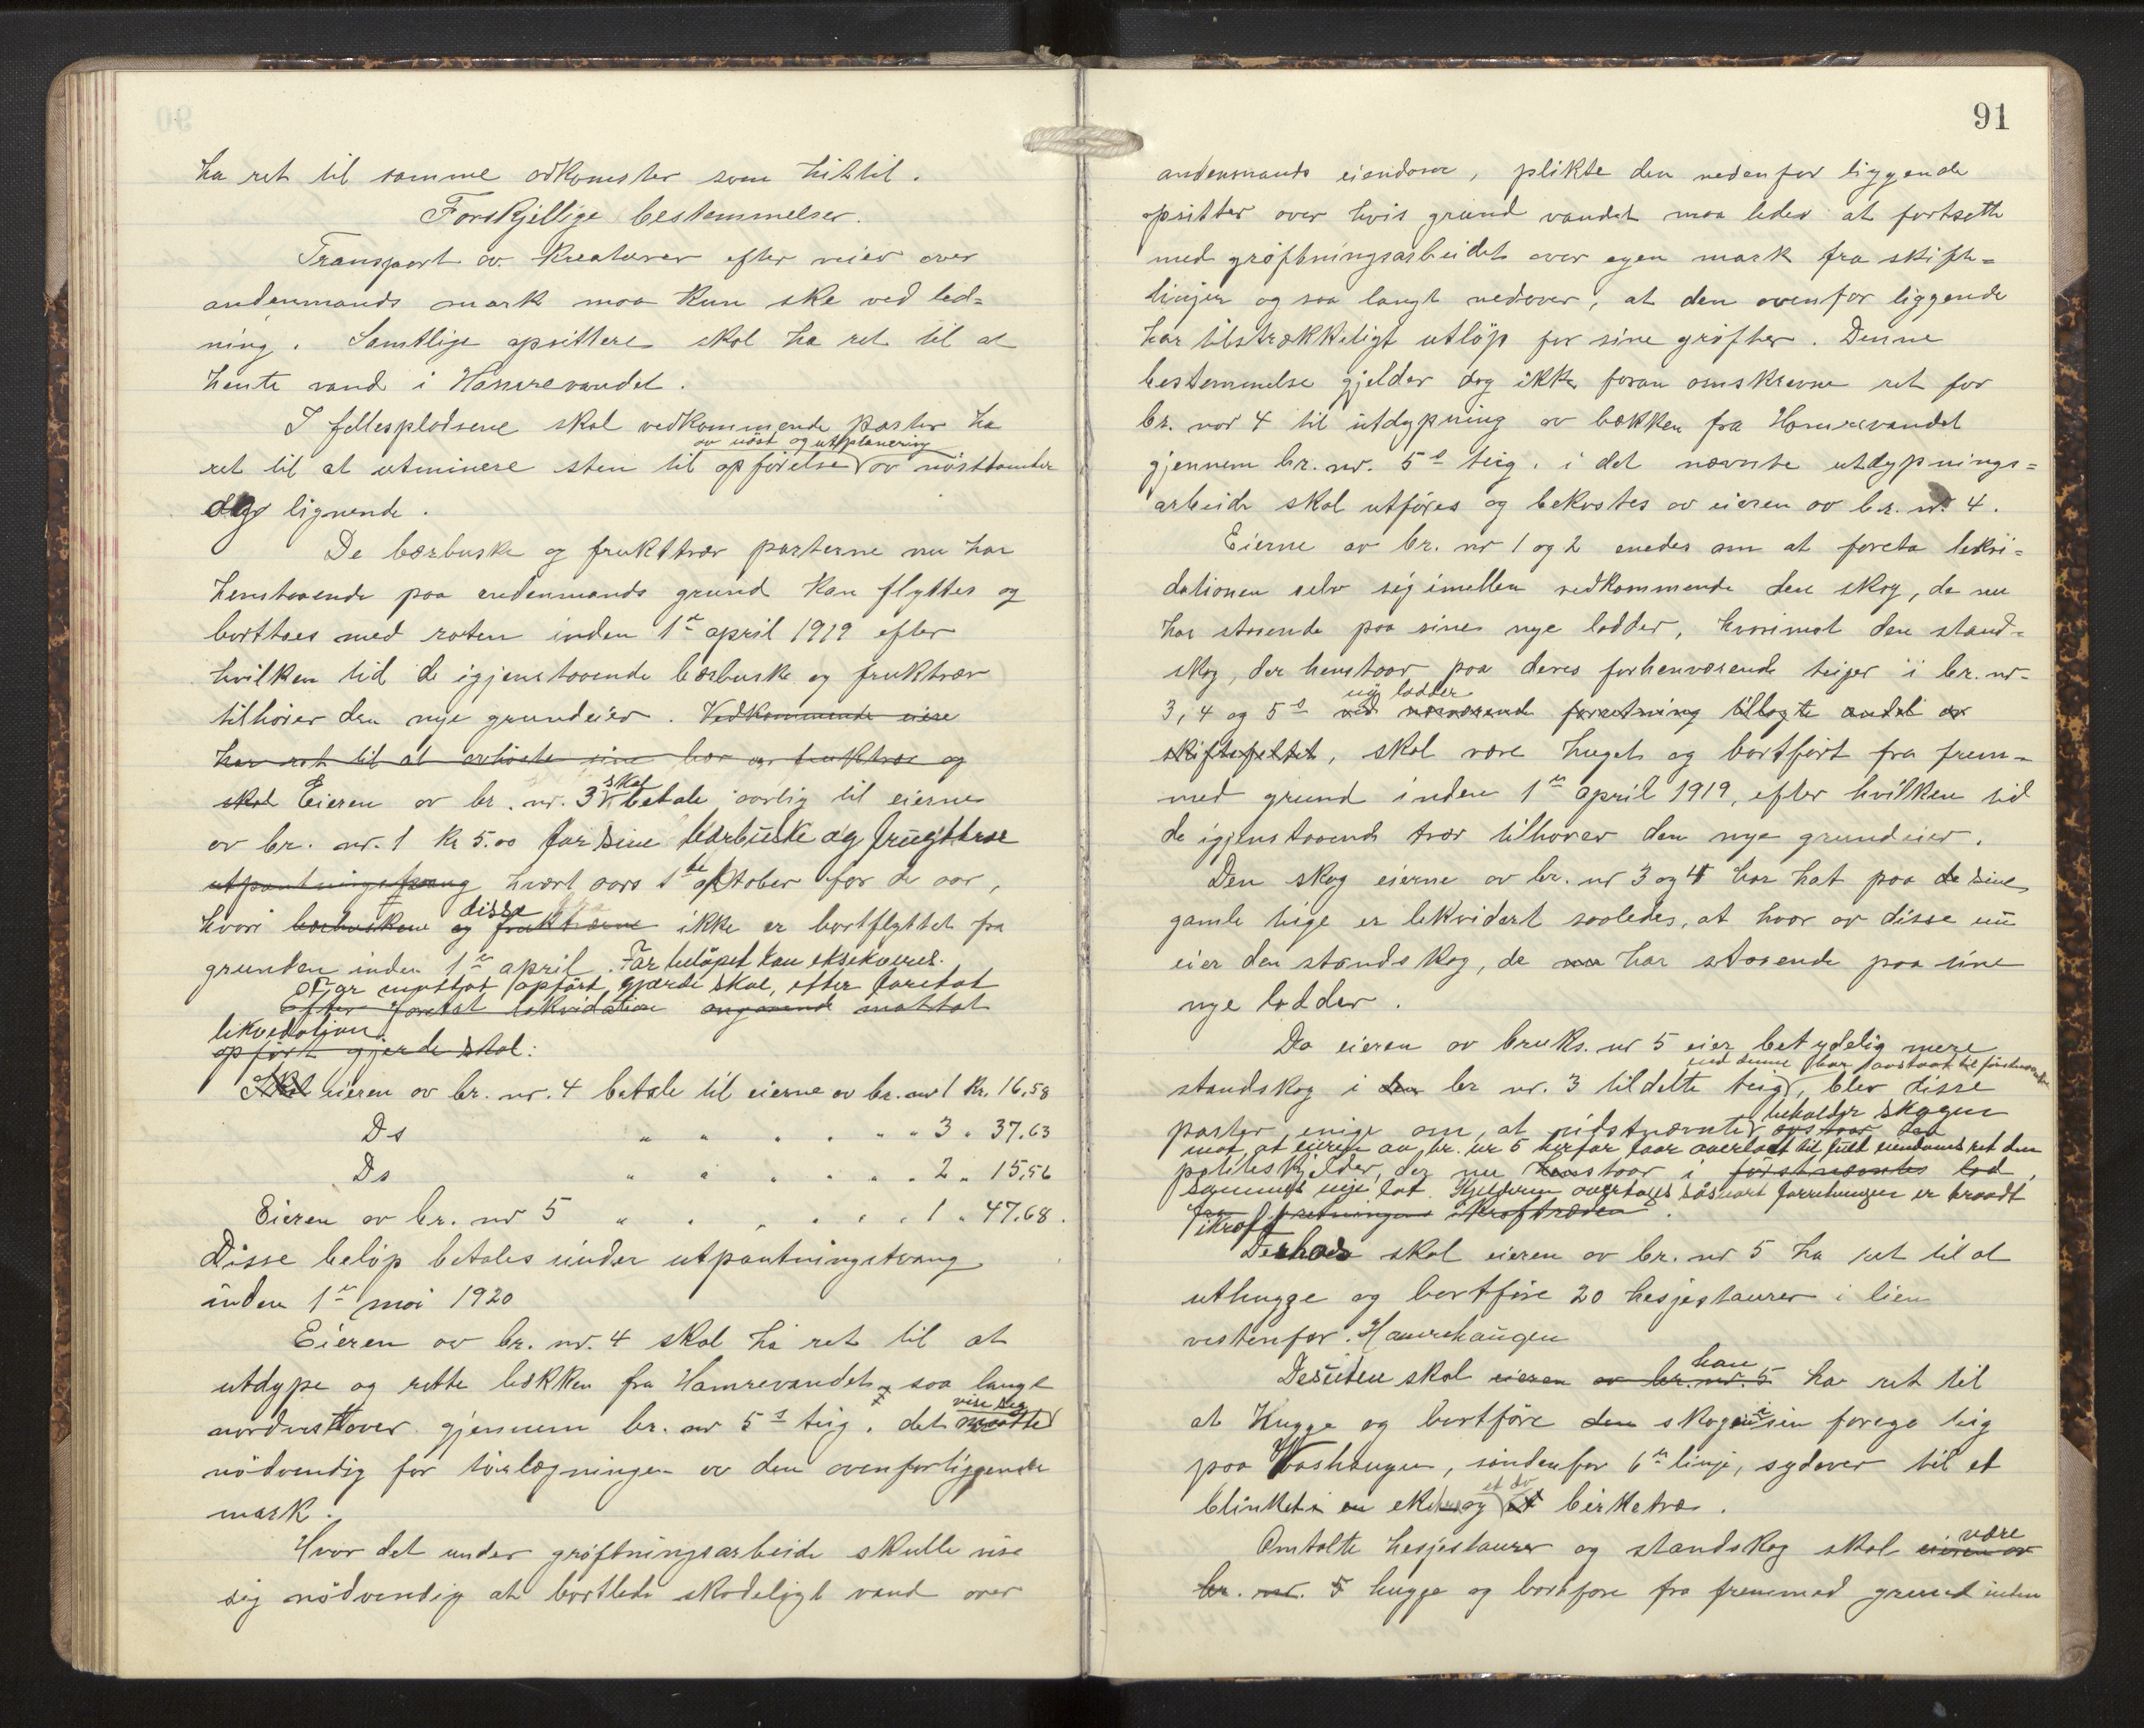 ha ret til samme adkomster som hittil.
Forskjellige bestemmelser.
Transport av kreaturer efter veier over
andenmands mark maa kun ske ved led=
ning. Samtlige opsittere skal ha ret til at
hente vand i Hamrevandet.
I fellespladsene skal vedkommende parter ha
av nöst og utplanering
ret til at utminere sten til opförelse av nösttomter
og lignende.
De bærbuske og frukttrær parterne nu har
henstaaende paa andenmands grund kan flyttes og
borttaes med roten inden 1ste april 1919 efter
hvilken tid de igjenstaaende bærbuske og frukttrær
tilhörer den nye grundeier. Vedkommende eiere
har ret til at avhöste sine bær og frukttrær og
skal Eieren av br. nr. 3 skal betale aarlig til eierne
av br. nr. 1 kr 5.00 for sine bærbuske og frugttræe
utpantningstvang hvert aars 1ste oktober for de aar,
hvori bærbuskene og frukttrærne disse ikke er bortflyttet fra
grunden inden 1ste april. For belöpet kan eksekveres.
For mottat opfört gjærde skal, efter foretat
Efter foretat likvidation angaaende mottat
likvidation
opfört gjerde skal:
Skal eieren av br. nr. 4 betale til eierne av br. nr 1 kr. 16,58
Ds " " " " " " 3 " 37.63
Ds " " " " " " 2 " 15,56
Eieren av br. nr 5 " " " " " " 1 " 47.68.
Disse belöp betales under utpantningstvang
inden 1ste mai 1920
Eieren av br. nr. 4 skal ha ret til at
utdype og rette bækken fra Hamrevandet saa langt
nordvestover gjennem br. nr 5s teig, det maatte vise sig
nödvendig for törlægningen av den ovenforliggende
mark.
Hvor det under gröftningsarbeide skulle vise
sig nödvendig at bortlede skadeligt vand over
91
andenmands eiendom, plikte den nedenfor liggende
opsitter over hvis grund vandet maa ledes at fortsette
med gröftningsarbeidet over egen mark fra skifte=
linjen og saa langt nedover, at den ovenfor liggende
har tilstrækkeligt utlöp for sine gröfter. Denne
bestemmelse gjelder dog ikke foran omskrevne ret for
br. nr 4 til utdypning av bækken fra Hamrevandet
gjennem br. nr. 5s teig, i det nævnte utdypnings=
arbeide skal utföres og bekostes av eieren av br. nr. 4.
Eierne av br. nr 1 og 2 enedes om at foreta lekvi=
dationen selv sig imellem vedkommende den skog, de nu
har staaende paa sine nye lodder, hvorimot den stand=
skog, der henstaar paa deres forhenværende teiger i br. nr.
3, 4 og 5s nye lodder ved nærværende forretning tillagte andel av
skiftefeltet, skal være hugget og bortfört fra frem=
med grund inden 1ste april 1919, efter hvilken tid
de igjenstaaende trær tilhörer den nye grundeier.
Den skog eierne av br. nr 3 og 4 har hat paa de sine
gamle teige er lekvidert saaledes, at hver av disse nu
eier den standskog, de nu har staaende paa sine
nye lodder.
Da eieren av bruks. nr 5 eier betydelig mere
standskog i den br nr. 3 tildelte teig, blev disse
parter enige om, at sidstnævnte beholder skogen avstaar den
mot at eieren av br. nr 5 herfor faar overlatt til fuld eiendomsret den
potiteskjelder, der nu henstaar i förstnævntes lod,
sammes nye lot. Kjelderen overtages saasnart forretningen er traadt
fra forretningens ikrafttræden.
ikraft
Derhos skal eieren av br. nr 5 ha ret til at
uthugge og bortföre 20 hesjestaurer i lien
vestenfor Hamrehaugen
Desuten skal han eieren av br. nr. 5 ha ret til
at hugge og bortföre den skogen i sin forrige teig
paa Vashaugen, söndenfor 6te linje, sydover til et
blinket en eke og et do et birketræ.
Omtalte hesjestaurer og standskog skal være eieren av
br. nr. 5 hugge og bortföre fra fremmed grund inden